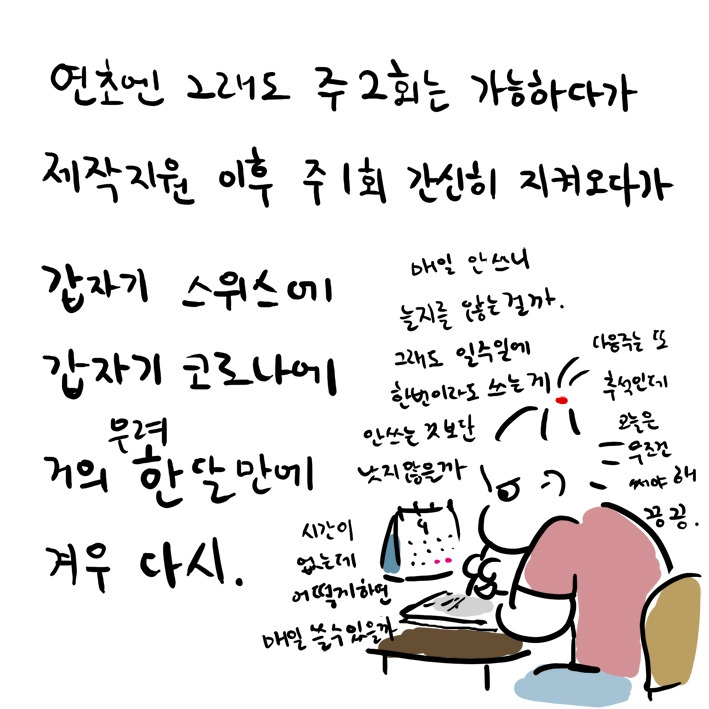 연초엔 그래도 주2회는 가능하다가
제작지원 이후 주1회 간신히 지켜오다가
갑자기 스위스에
갑자기 코로나에
무려
거의 한달만에
겨우 다시.
매일 안쓰니
늘지를 않는걸까.
그래도 일주일에
한번이라도 쓰는게
안쓰는 것보단
낫지않을까
다음주는 또
추석인데
오늘은
무조건
써야 해
끙끙.
시간이
없는데
어떻게하면
매일 쓸수있을까
9